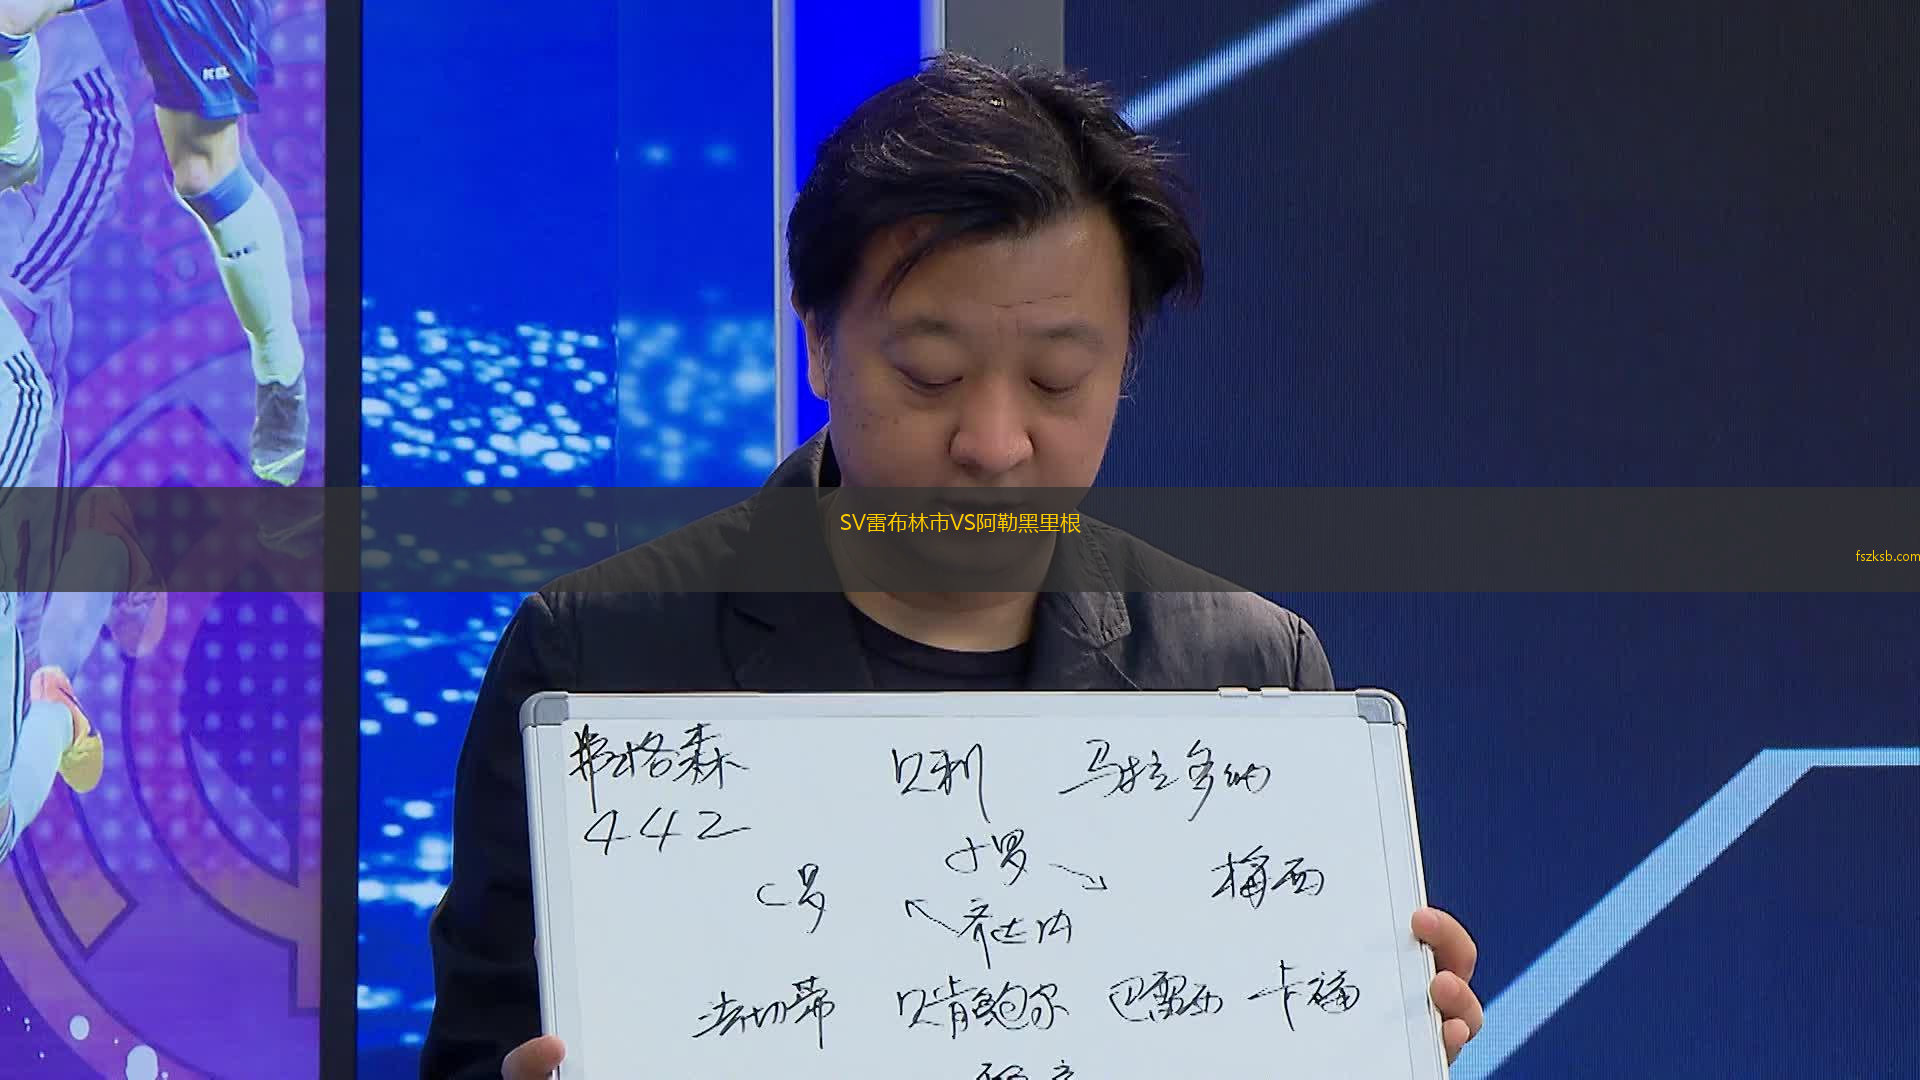 KEL
SV雷布林市VS阿勒黑里根
fszksb.com
弗格森 贝利 马拉多纳
442
小罗
C罗 梅西
齐达内
法切蒂 贝肯鲍尔 巴雷西 卡福